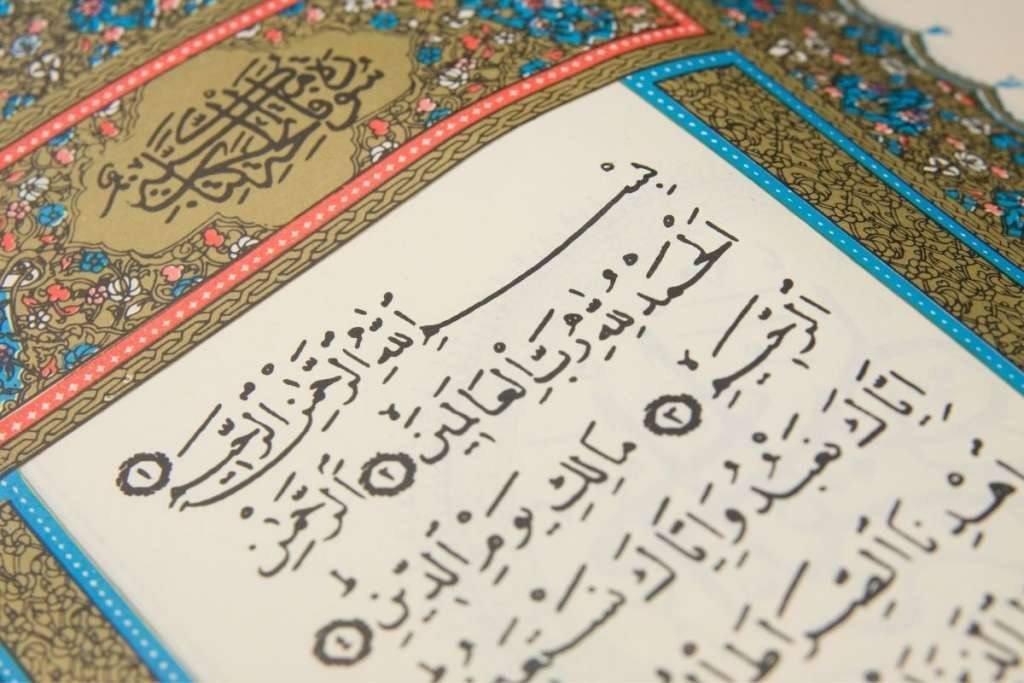 سورة فاتحة الكتاب
بِسْمِ ٱللّٰهِ ٱلرَّحْمٰنِ ٱلرَّحِيمِ ١
اَلْحَمْدُ لِلّٰهِ رَبِّ ٱلْعَالَمِينَ ٢ اَلرَّحْمٰنِ
ٱلرَّحِيمِ ٣ مَالِكِ يَوْمِ ٱلدِّينِ ٤
اِيَّاكَ نَعْبُدُ وَاِيَّاكَ نَسْتَعِينُ
اِهْدِنَا ٱلصِّرَاطَ